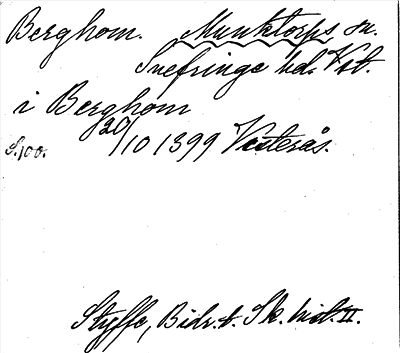 Berghom. Munktorps sn.
Snefringe hd. Vst.
i Berghom
20/10 1399 Vesterås.
S. 100.
Styffe, Bidr. t. Sk. hist. II.